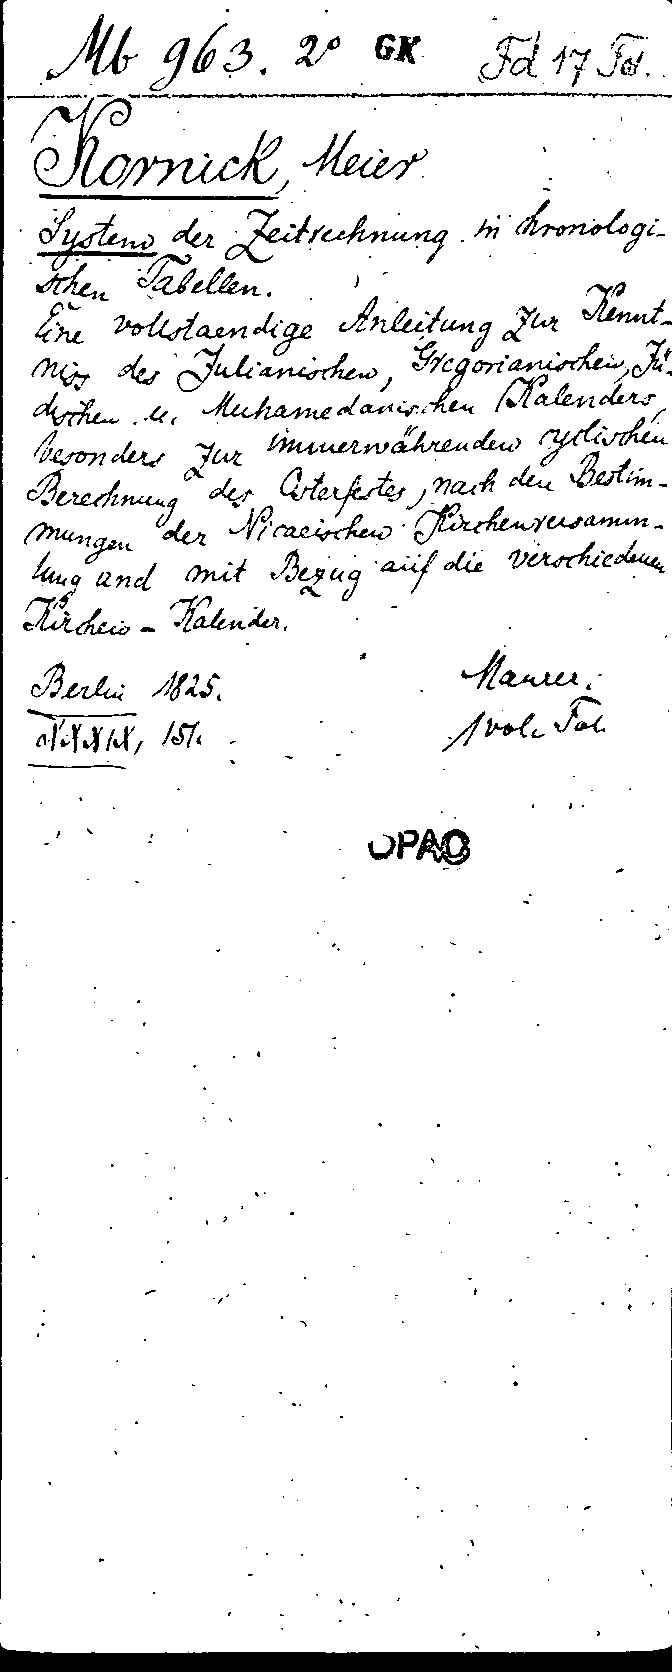 Mb 963. 2° GK Fd 17 Fol.
Kornick, Meier
System der Zeitrechnung in kronologi-
schen Tabellen.
Eine vollstaendige Anleitung zur Kennt-
niss des Julianischen, Gregorianischen, Jü-
dischen u. Muhamedanischen Kalenders,
besonders zur immerwährenden cyclischen
Berechnung des Osterfestes, nach den Bestim-
mungen der Nicaeischen Kirchenversamm-
lung und mit Bezug auf die verschiedenen
Kirchen-Kalender.
Berlin 1825. Maurer.
XXXIX, 151. 1 vol. Fol.
OPAC